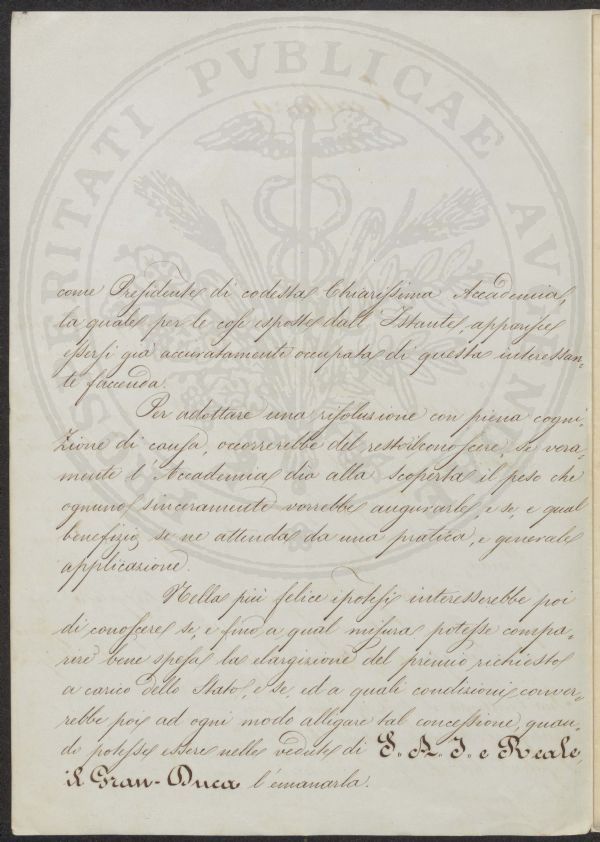 PROSPERITATI PVBLICAE AVGENDAE
come Presidente di codesta Chiarissima Accademia,
la quale per le cose esposte dall'Istante, apparisce
essersi già accuratamente occupata di questa interessan-
te faccenda.
Per adottare una risoluzione con piena cogni-
zione di causa, occorrerebbe del resto il conoscere, se vera-
mente l'Accademia dia alla scoperta il peso che
ognuno sinceramente vorrebbe augurarle, e se, e qual
benefizio, se ne attenda da una pratica, e generale
applicazione.
Nella più felice ipotesi interesserebbe poi
di conoscere se, e fino a qual misura potesse compa-
rire bene spesa la elargizione del premio richiesto
a carico dello Stato, e se, ed a quali condizioni conver-
rebbe poi ad ogni modo alligare tal concessione, quan-
do potesse essere nelle vedute di S. A. I. e Reale,
il Gran-Duca l'emanarla.